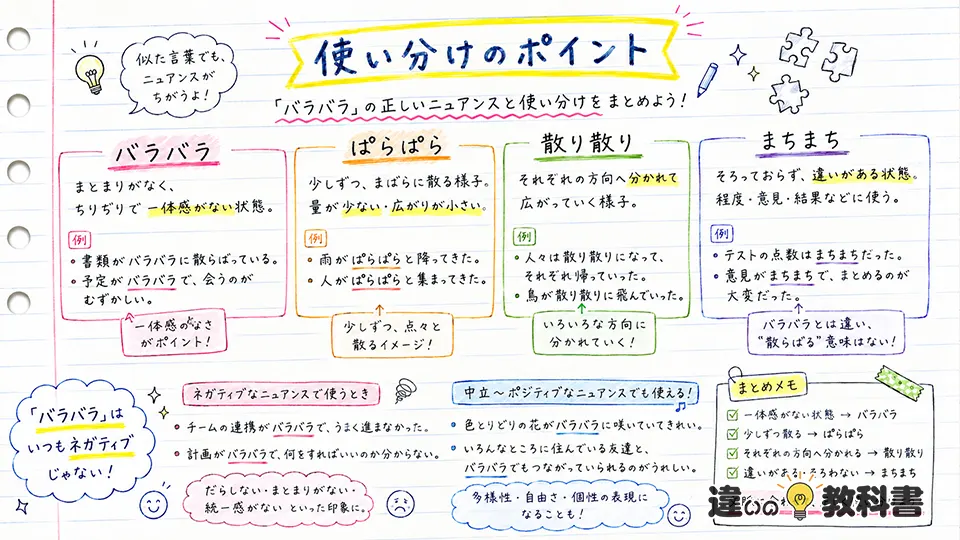 使い分けのポイント
似た言葉でも、
ニュアンスが
ちがうよ！
「バラバラ」の正しいニュアンスと使い分けをまとめよう！
バラバラ
まとまりがなく、
ちりぢりで一体感がない状態。
例
・書類がバラバラに散らばっている。
・予定がバラバラで、会うのが
むずかしい。
一体感のなさ
がポイント！
ぱらぱら
少しずつ、まばらに散る様子。
量が少ない・広がりが小さい。
例
・雨がぱらぱらと降ってきた。
・人がぱらぱらと集まってきた。
少しずつ、点々と
散るイメージ！
散り散り
それぞれの方向へ分かれて
広がっていく様子。
例
・人々は散り散りになって、
それぞれ帰っていった。
・鳥が散り散りに飛んでいった。
いろいろな方向に
分かれていく！
まちまち
そろっておらず、違いがある状態。
程度・意見・結果などに使う。
例
・テストの点数はまちまちだった。
・意見がまちまちで、まとめるのが
大変だった。
バラバラとは違い、
“散らばる”意味はない！
「バラバラ」は
いつもネガティブ
じゃない！
ネガティブなニュアンスで使うとき
・チームの連携がバラバラで、うまく進まなかった。
・計画がバラバラで、何をすればいいのか分からない。
だらしない・まとまりがない・
統一感がない といった印象に。
中立〜ポジティブなニュアンスでも使える！
・色とりどりの花がバラバラに咲いていてきれい。
・いろんなところに住んでいる友達と、
バラバラでもつながっていられるのがうれしい。
多様性・自由さ・個性の表現に
なることも！
まとめメモ
一体感がない状態 → バラバラ
少しずつ散る → ぱらぱら
それぞれの方向へ分かれる → 散り散り
違いがある・そろわない → まちまち
違いの教科書